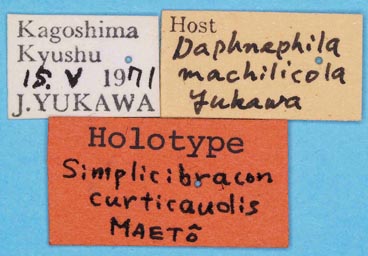 Kagoshima
Kyushu
15. V 1971
J.YUKAWA
Host
Daphnephila
machilicola
Yukawa
Holotype
Simplicibracon
curticaudis
MAETÔ